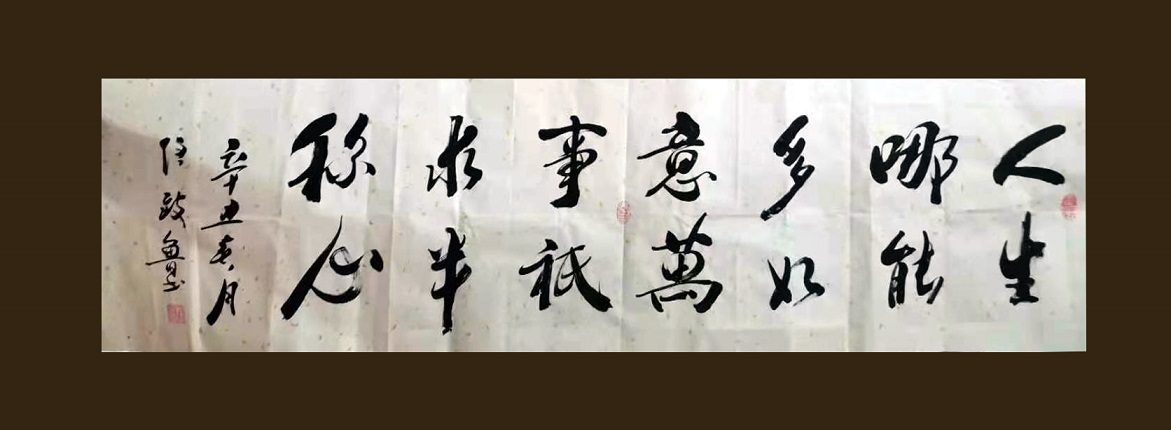 人生
哪能
多如
意萬
事祇
求半
称心
辛丑春月
任政鲁书